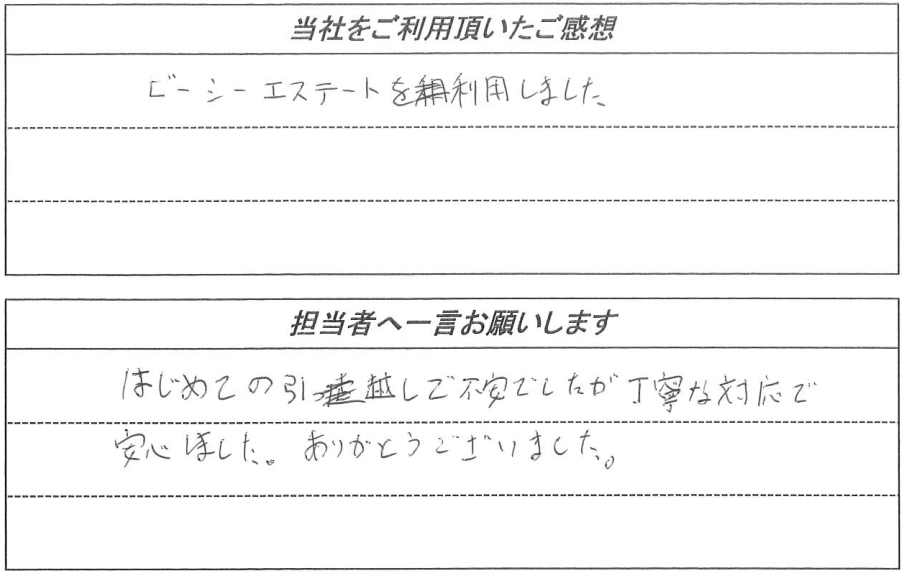 当社をご利用頂いたご感想
ビーシーエステートを利用しました。
担当者へ一言お願いします
はじめての引っ越しで不安でしたが丁寧な対応で
安心しました。ありがとうございました。